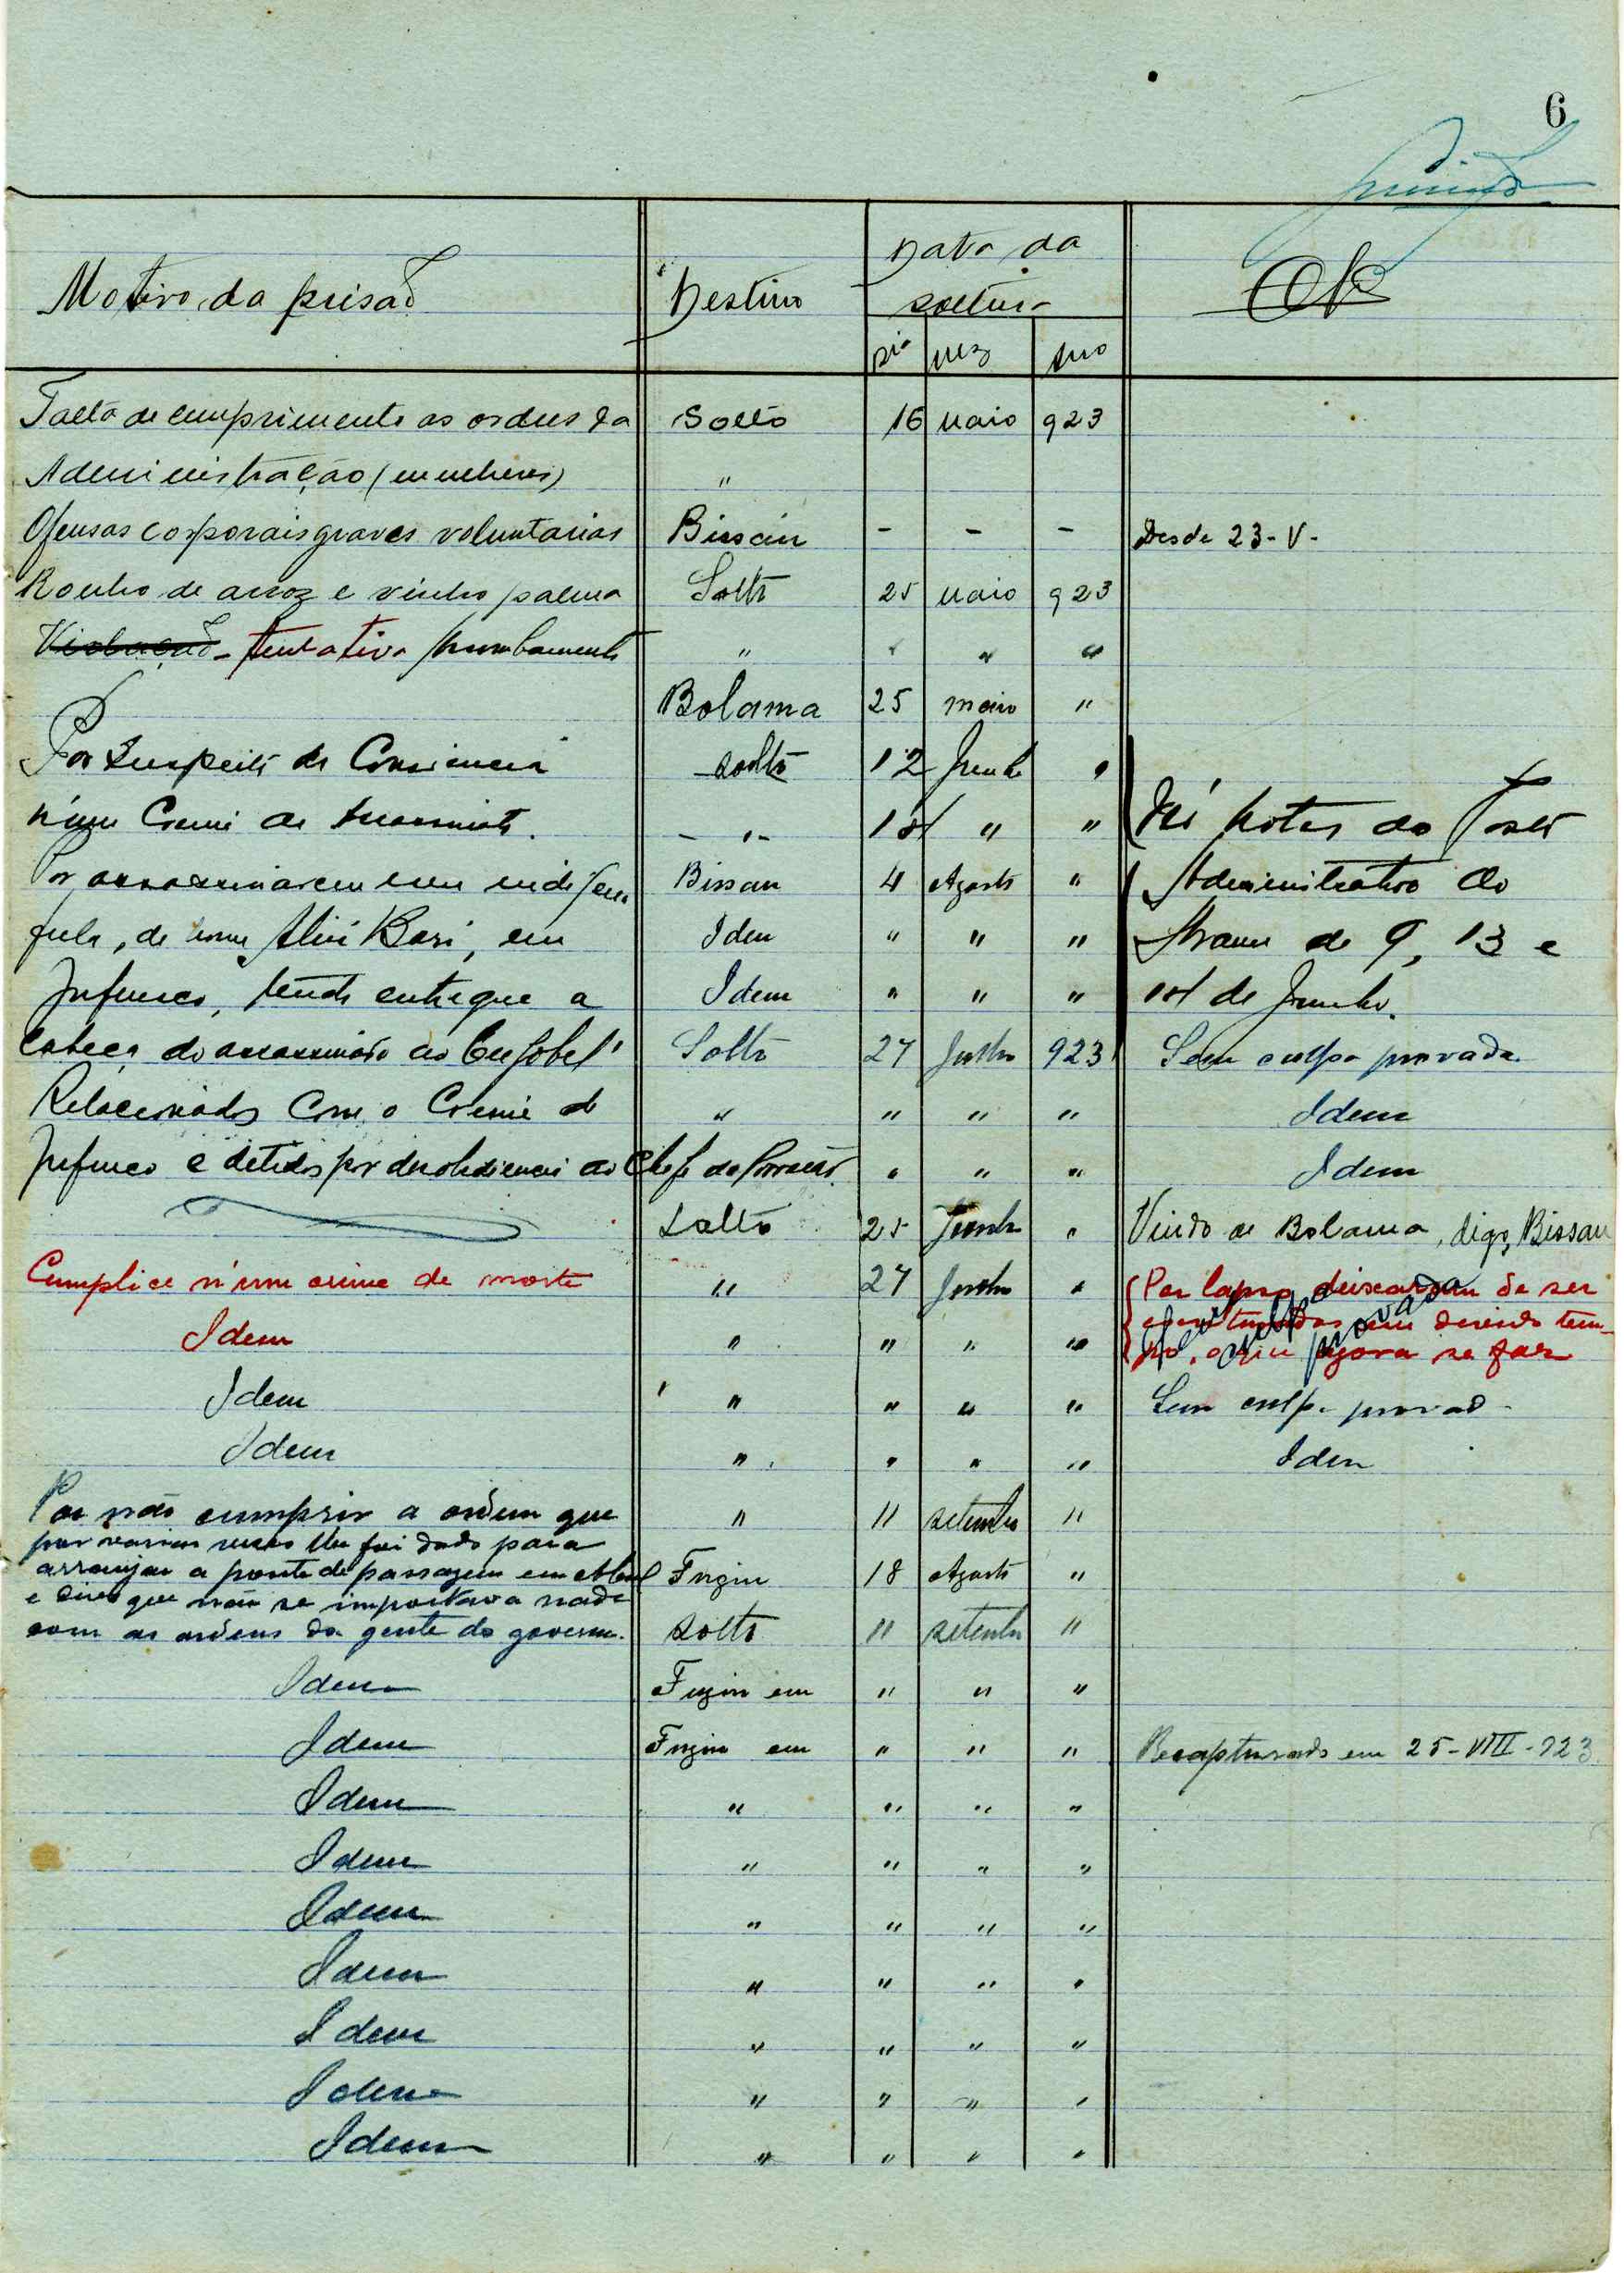 6
Motivo da prisão Destino Data da soltura
Dia Mez Ano
Falta de cumprimento as ordens da Solto 16 Maio 923
Administração (mulheres) "
Ofensas corporais graves voluntarias Bissau - - - Desde 23-V-
Roubo de arroz e vinho palma Solto 25 Maio 923
Violação - tentativa " " " "
Bolama 25 maio "
Por suspeita de solto 12 Junho "
n'um Crime de - " - 18 " " Notas do Posto
Por assassinarem um indigena Bissau 4 Agosto " Administrativo de
fula, de nome Bari, em Idem " " " de 9, 13 e
tendo entregue a Idem " " " 18 de Junho.
cabeça do assassinado ao Solto 27 Junho 923 Sem culpa provada
Relacionados com o Crime de " " " " Idem
e detidos por desobediencia ao Chefe da " " " Idem
Solto 25 Junho " Vindo de Bolama, digo, Bissau
Cumplice n'um crime de morte " 27 Junho " Por lapso deixaram de ser
Idem " " " " em devido tem-
po, o que agora se faz
Sem culpa provada
Idem " " " " Sem culpa provad-
Idem " " " " Idem
Por não cumprir a ordem que " 11 setembro "
por varias vezes lhe foi dado para
arranjar a ponte de passagem em Fugiu 18 Agosto "
e disse que não se importava nada
com as ordens da gente do governo. solto 11 setembro "
Idem Fugiu em " " "
Idem Fugiu em " " " Recapturado em 25-VIII-923
Idem " " " "
Idem " " " "
Idem " " " "
Idem " " " "
Idem " " " "
Idem " " " "
Idem " " " "